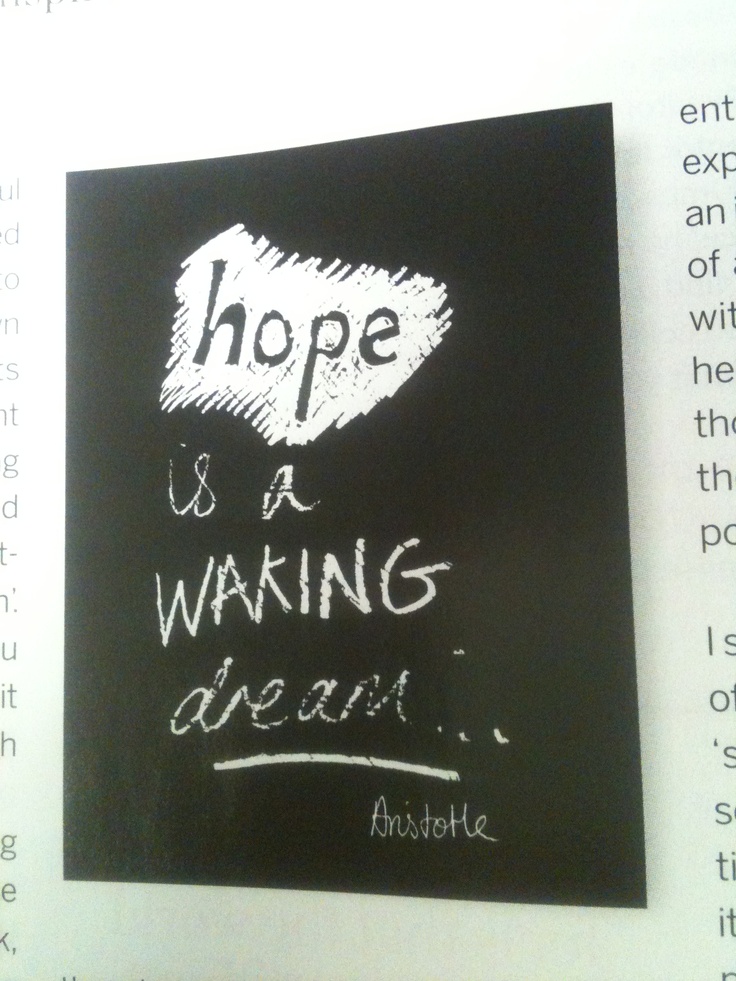 hope
is a
WAKING
dream...
Aristotle
ul
ed
to
wn
ts
nt
ng
d
t-
n'.
u
it
h
g
e
k,
ent
exp
an i
of a
wit
he
tho
the
po
I s
of
's
so
ti
it